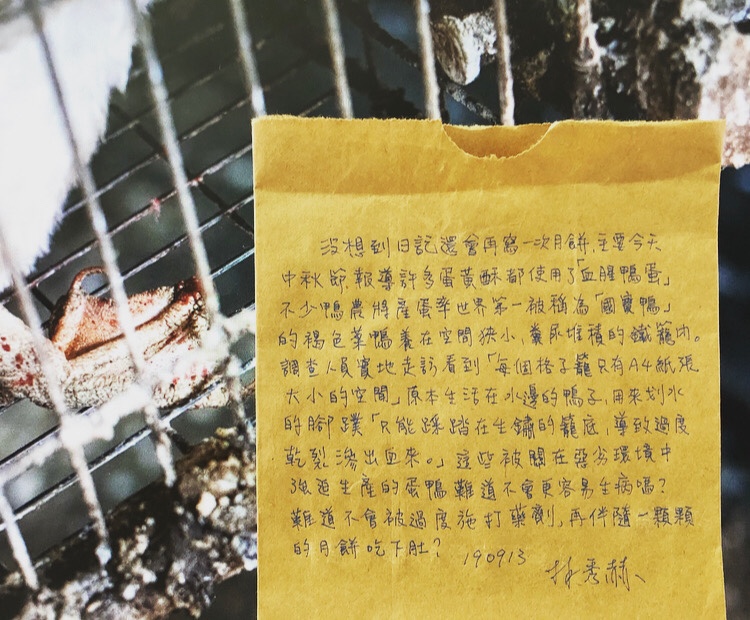 沒想到日記還會再寫一次月餅,主要今天
中秋節,報導許多蛋黃酥都使用了「血腥鴨蛋」
不少鴨農將產蛋率世界第一被稱為「國寶鴨」
的褐色菜鴨養在空間狹小,糞尿堆積的鐵籠內。
調查人員實地走訪看到「每個格子籠只有A4紙張
大小的空間」原本生活在水邊的鴨子,用來划水
的腳蹼「只能踩踏在生鏽的籠底,導致過度
乾裂滲出血來。」這些被關在惡劣環境中
強迫生產的蛋鴨難道不會更容易生病嗎?
難道不會被過度施打藥劑,再伴隨一顆顆
的月餅吃下肚?
190913 林秀赫